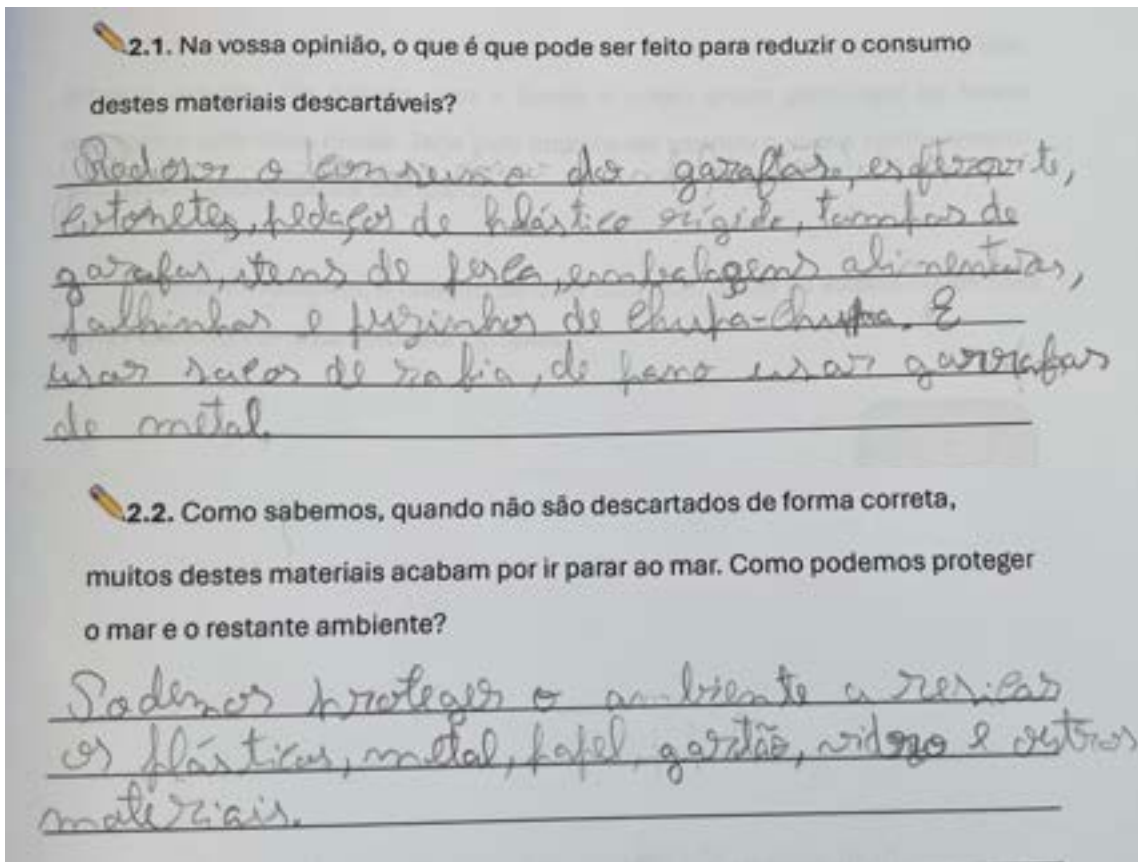 2.1. Na vossa opinião, o que é que pode ser feito para reduzir o consumo
destes materiais descartáveis?
o consumo das garaflas, esferovite,
cotonetes, pedaços de plástico rígido, tampas de
garafas, itens de pesca, embalagens alimentuias,
palhinhas e puzinhos de chupa-chupa. E
usar sacos de rafia, de pano usar garrafas
de metal.
2.2. Como sabemos, quando não são descartados de forma correta,
muitos destes materiais acabam por ir parar ao mar. Como podemos proteger
o mar e o restante ambiente?
Podemos proteger o ambiente a
os plásticos, metal, papel, gartão, vidro e outros
materiais.